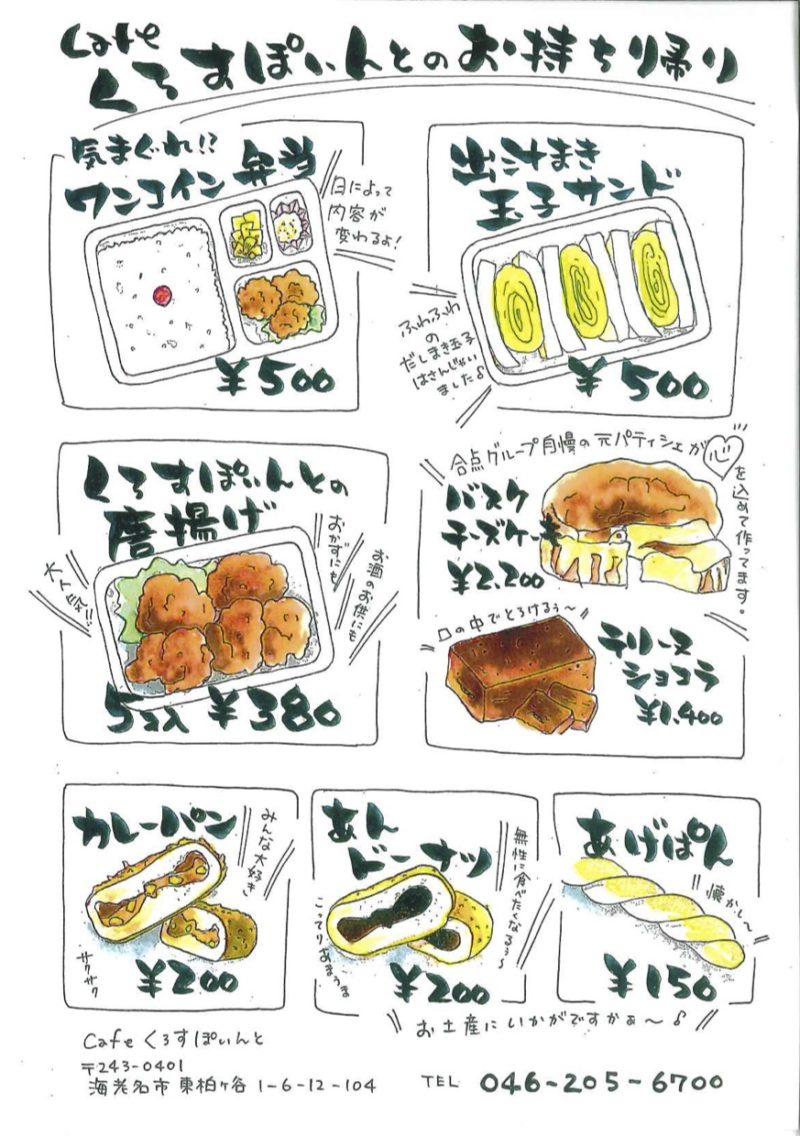 Cafe
くろすぽいんとのお持ち帰り
気まぐれ!?
ワンコイン弁当
日によって
内容が
変わるよ!
¥500
出汁まき
玉子サンド
ふわふわ
の
だしまき玉子
はさんじゃい
ました♪
¥500
くろすぽいんとの
唐揚げ
大人気!!
おかずにも
お酒のお供にも
5コ入 ¥380
合点グループ自慢の元パティシェが心を込めて作ってます。
バスク
チーズケーキ
¥2,200
口の中でとろけるぅ〜
テリーヌ
ショコラ
¥1,400
カレーパン
みんな大好き
サクサク
¥200
あん
ドーナツ
無性に食べたくなるぅ〜
こってりあまうま
¥200
あげぱん
懐かし〜
¥150
お土産にいかがですかぁ〜♪
Cafe くろすぽいんと
〒243-0401
海老名市東柏ヶ谷 1-6-12-104
TEL 046-205-6700